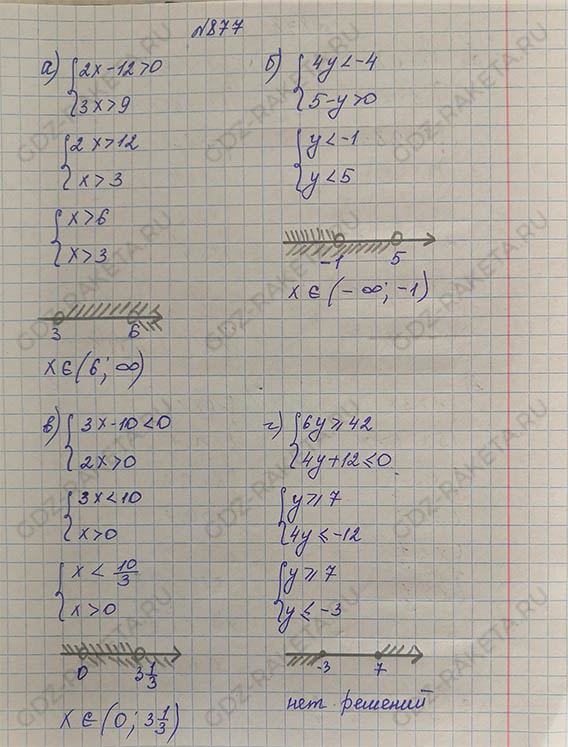 №877
а) { 2x-12>0
3x>9
{ 2x>12
x>3
{ x>6
x>3
3 6
x∈(6; ∞)
б) { 4y<-4
5-y>0
{ y<-1
y<5
-1 5
x∈(-∞; -1)
в) { 3x-10<0
2x>0
{ 3x<10
x>0
{ x < 10/3
x>0
0 3 1/3
x∈(0; 3 1/3)
г) { 6y⩾42
4y+12⩽0
{ y⩾7
4y⩽-12
{ y⩾7
y⩽-3
-3 7
нет решений
GDZ-RAKETA.RU